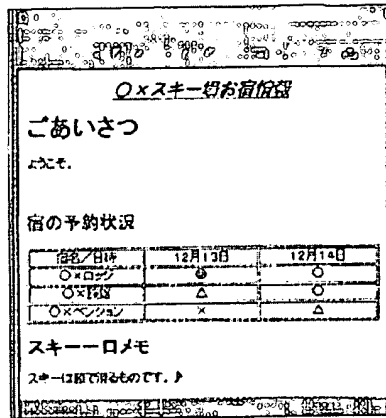 ○×スキー場お宿情報
ごあいさつ
ようこそ。
宿の予約状況
宿名/日時 12月13日 12月14日
○×ロッジ ◎ ○
○× △ ○
○×ペンション × △
スキー一口メモ
スキーは板で滑るものです。♪